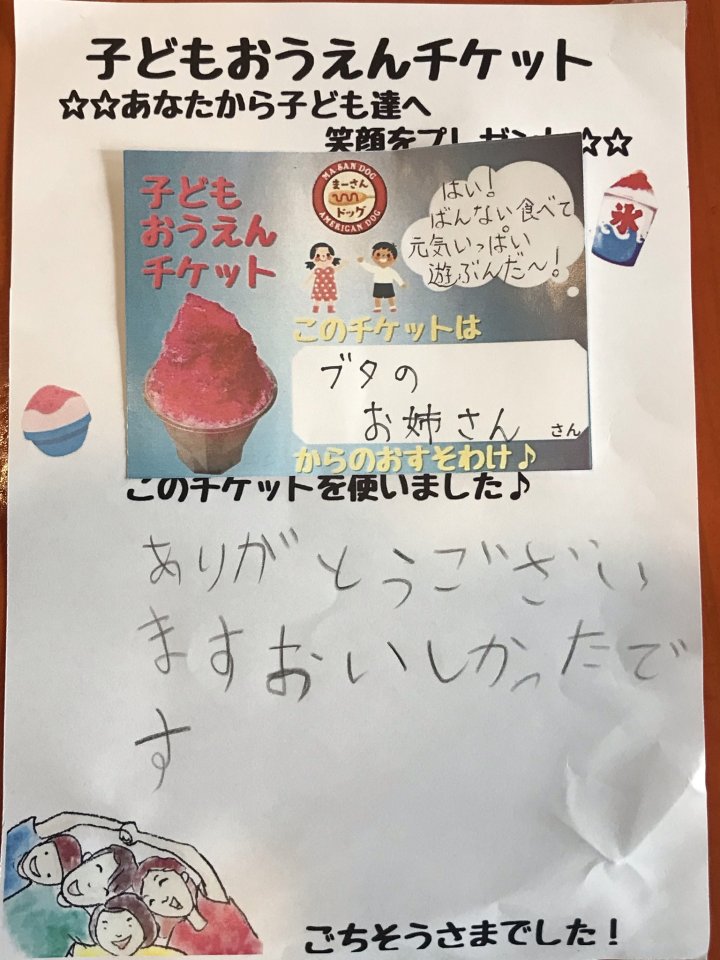 子どもおうえんチケット
☆☆あなたから子ども達へ
笑顔をプレゼント☆☆
子ども
おうえん
チケット
MA SAN DOG
まーさん
ドッグ
AMERICAN DOG
はい!
ばんない食べて
元気いっぱい
遊ぶんだ〜!
氷
このチケットは
ブタの
お姉さん さん
からのおすそわけ♪
このチケットを使いました♪
ありがとうござい
ますおいしかったで
す
ごちそうさまでした!